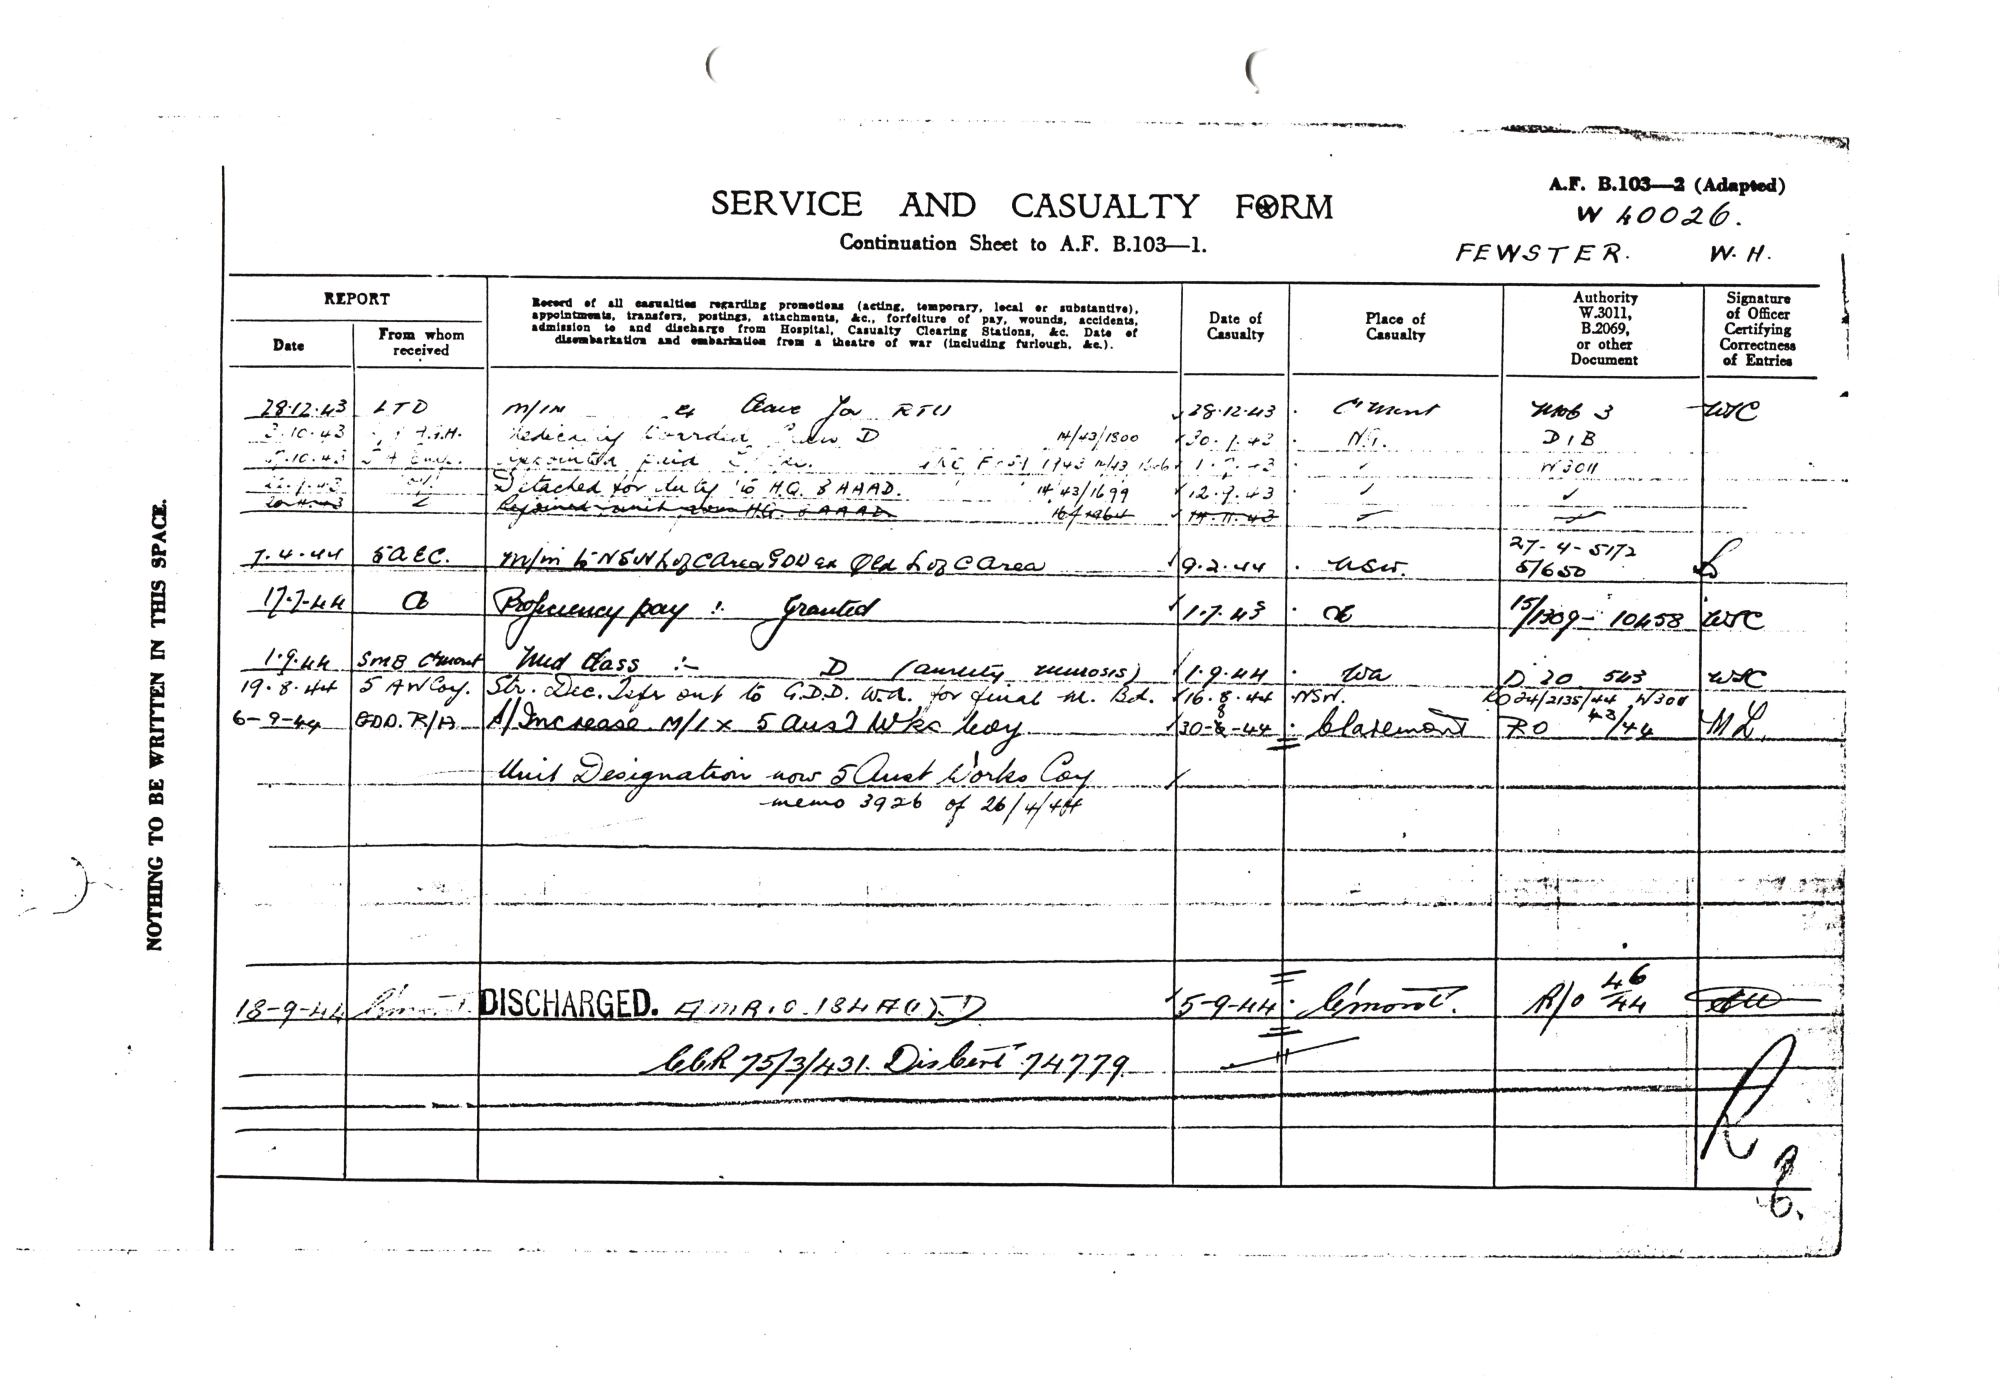 A.F. B.103—2 (Adapted)
SERVICE AND CASUALTY FORM
W 40026.
Continuation Sheet to A.F. B.103—1.
FEWSTER. W. H.
NOTHING TO BE WRITTEN IN THIS SPACE.
REPORT
Date
From whom received
Record of all casualties regarding promotions (acting, temporary, local or substantive),
appointments, transfers, postings, attachments, &c., forfeiture of pay, wounds, accidents,
admission to and discharge from Hospital, Casualty Clearing Stations, &c. Date of
disembarkation and embarkation from a theatre of war (including furlough, &c.).
Date of Casualty
Place of Casualty
Authority W.3011, B.2069, or other Document
Signature of Officer Certifying Correctness of Entries
28.12.43 LTD M/IN Leave for RTU 28.12.43 C'mont Mob 3 WJC
3.10.43 Medically Boarded Class D 14/43/1800 43 DIB
10.43 1943 43 W3011
Detached for duty to H.Q. 8 AAAD. 14/43/1699 12.9.43
Rejoined unit from HQ 8 AAAD
7.4.44 5 AEC. M/in to NSW L of C Area GDD ex Qld L of C Area 9.2.44 NSW. 27-4-5172
5/650
17.7.44 Proficiency pay :- Granted 1.7.43 15/1309-10458 WJC
1.9.44 SMB C'mont Med Class :- D (anxiety neurosis) 1.9.44 WA D 20 543 WJC
19.8.44 5 AW Coy. Str. Dec. Tsfr out to G.D.D. W.A. for final M. Bd. 16.8.44 NSW. RO 24/2135/44 W3011
6-9-44 GDD. R/A A/Increase M/I x 5 Aust Wks Coy 30-8-44 Claremont RO 43/44 ML.
Unit Designation now 5 Aust Works Coy
memo 3926 of 26/4/44
18-9-44 DISCHARGED. A.M.R.O. 184A(1) D 5-9-44 C'mont. R/O 46/44
CCR 75/3/431. Dis Cert 74779